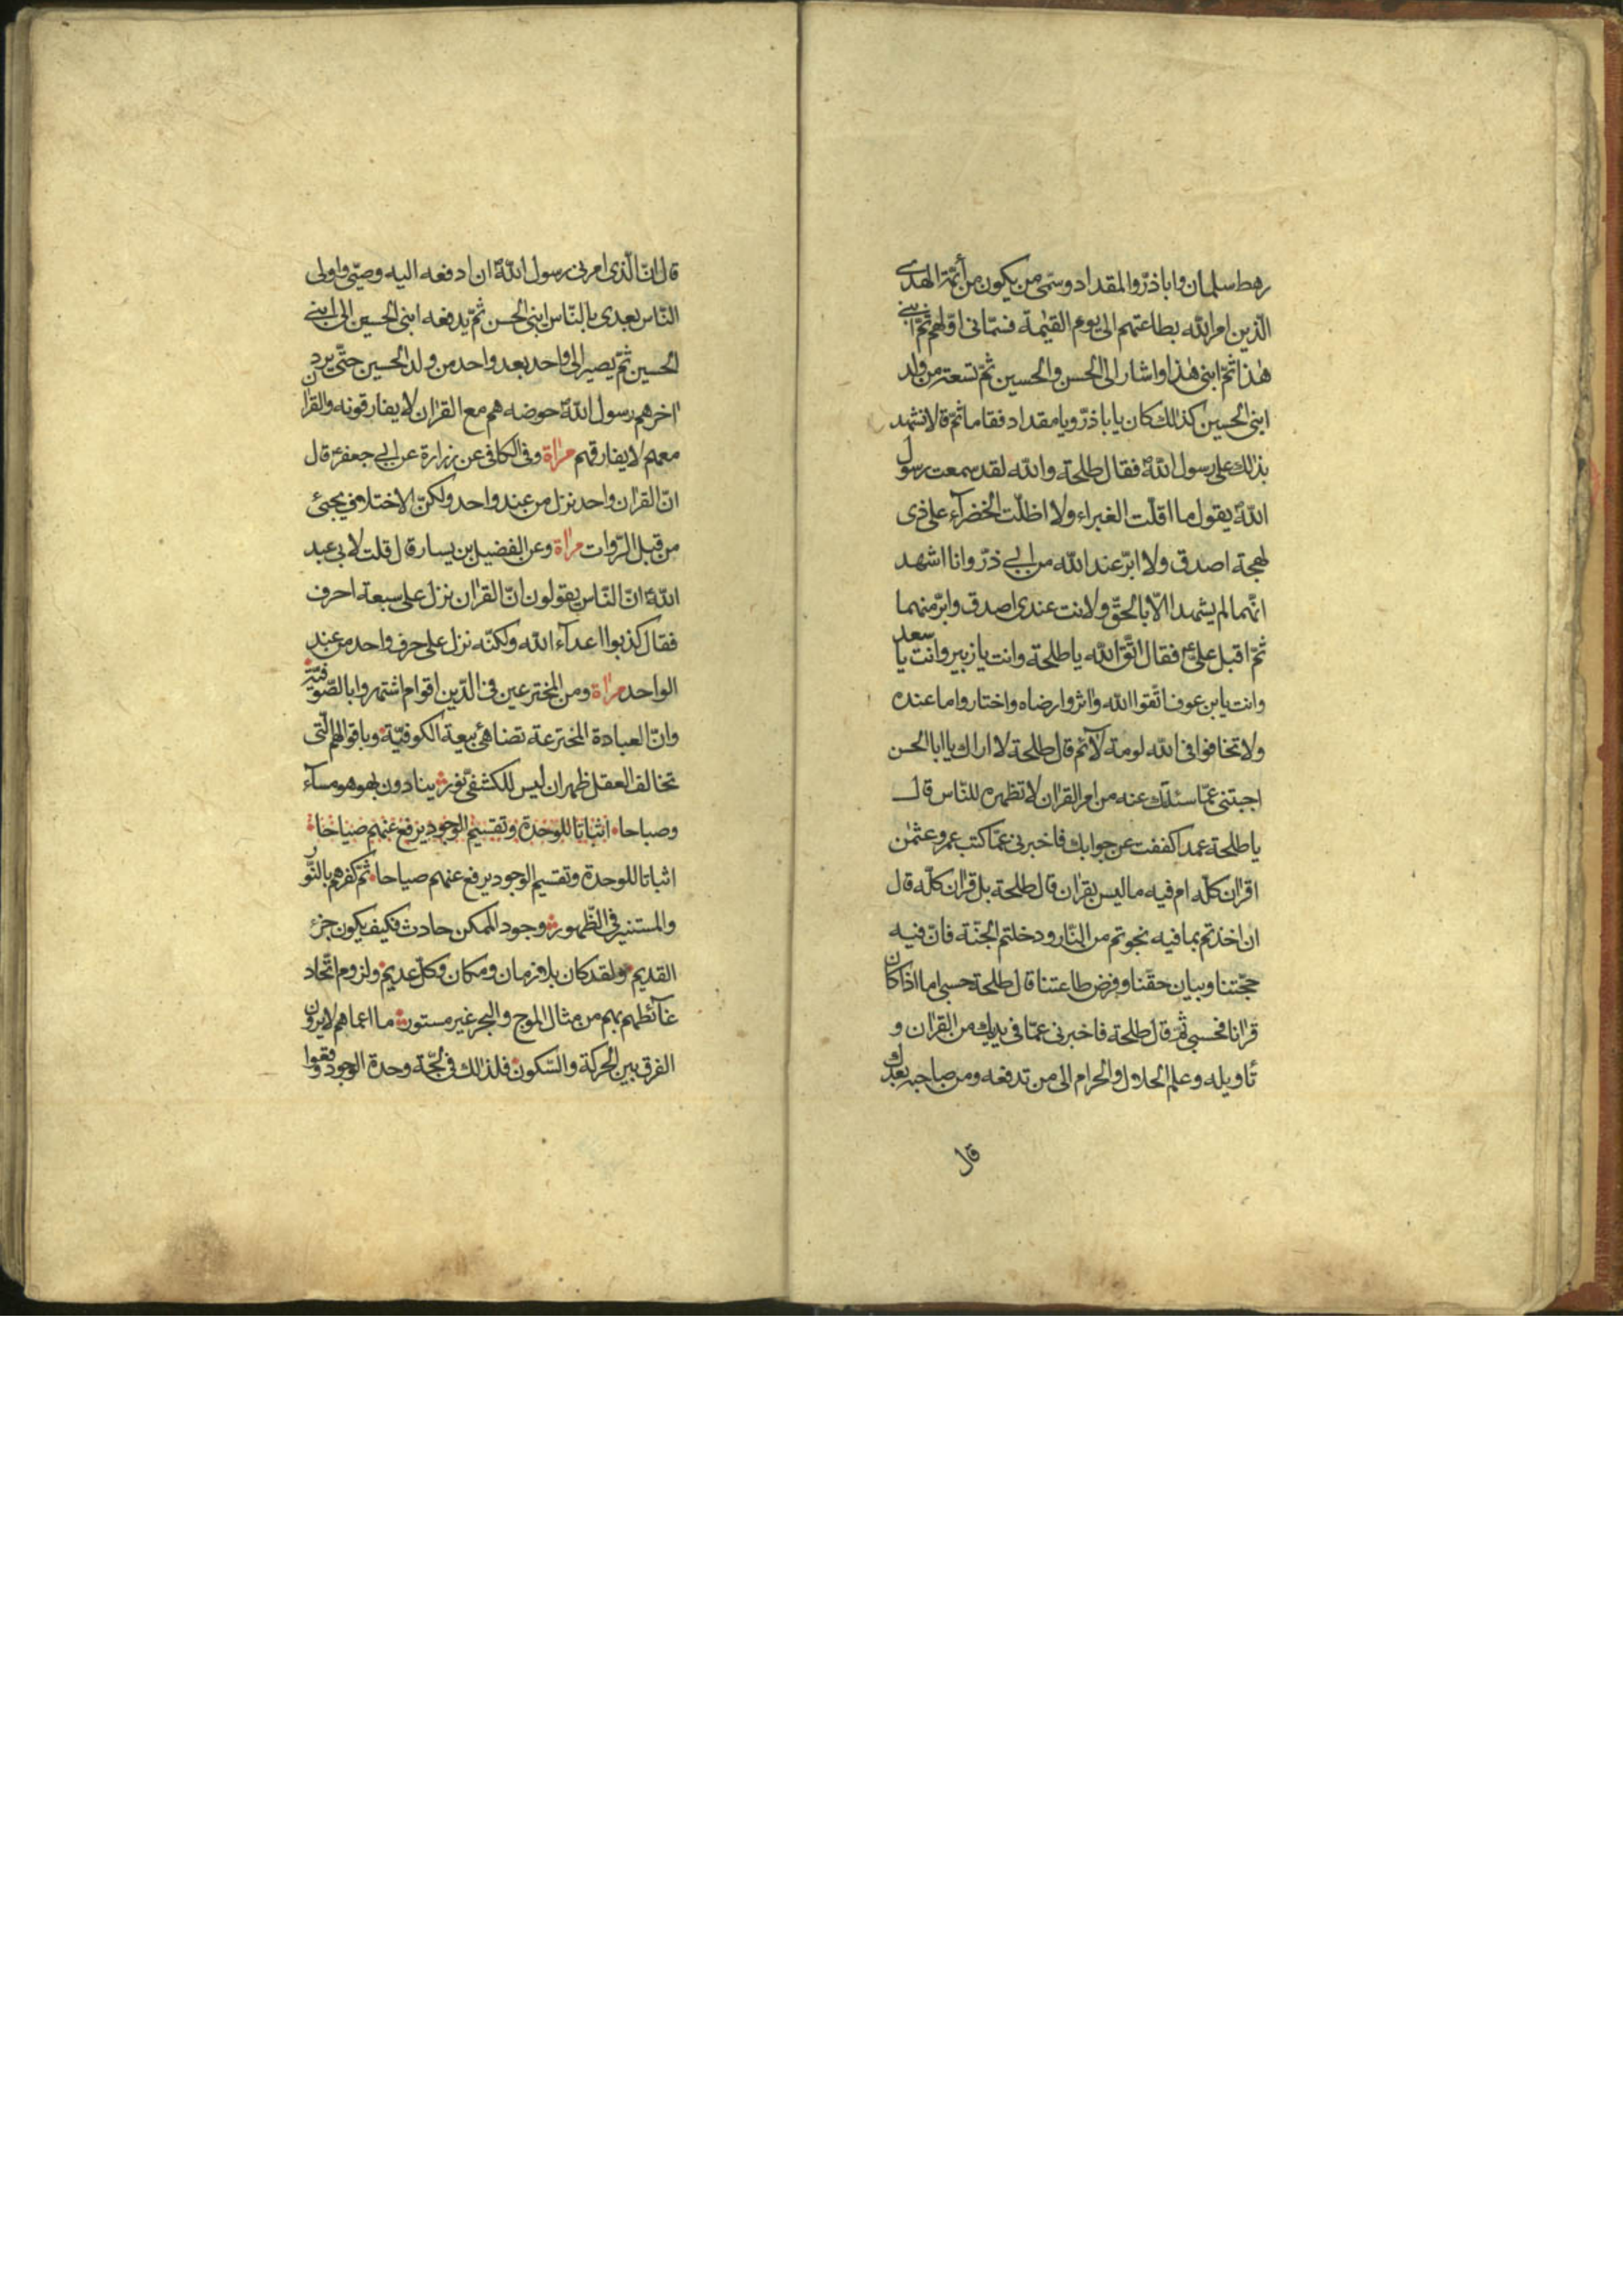 رهط سلمان وابا ذرّ والمقداد وسمّى من يكون من أئمّة الهدى
الّذين امر الله بطاعتهم الى يوم القيٰمة فسمّانى اوّلهم ثمّ ابنى
هذا ثمّ ابنى هذا واشار الى الحسن والحسين ثمّ تسعة من ولد
ابنى الحسين كذلك كان يا باذرّ ويا مقداد فقاما ثمّ قالا نشهد
بذلك على رسول الله فقال طلحة والله لقد سمعت رسول
الله يقول ما اقلّت الغبراء ولا اظلّت الخضرآء على ذى
لهجة اصدق ولا ابرّ عند الله من ابى ذرّ وانا اشهد
انّهما لم يشهدا الّا بالحقّ ولانت عندى اصدق وابرّ منهما
ثمّ اقبل علىّ فقال اتّق الله يا طلحة وانت يا زبير وانت يا سعد
وانت يابن عوف اتّقوا الله واثروا رضاه واختاروا ما عنده
ولا تخافوا فى الله لومة لآئم قال طلحة لا اراك يا ابا الحسن
اجبتنى عمّا سئلتك عنه من امر القران لا تظهره للنّاس قال
يا طلحة عمدا كففت عن جوابك فاخبرنى عمّا كتب عمر وعثمٰن
اقران كلّه ام فيه ما ليس بقران قال طلحة بل قران كلّه قال
ان اخذتم بما فيه نجوتم من النّار ودخلتم الجنّة فانّ فيه
حجّتنا وبيان حقّنا وفرض طاعتنا قال طلحة حسبى اما اذا كان
قرانا فحسبى ثمّ قال طلحة فاخبرنى عمّا فى يديك من القران و
تأويله وعلم الحلال والحرام الى من تدفعه ومن صاحبه بعدك
قال
قال انّ الّذى امرنى رسول الله ان ادفعه اليه وصيّى واولى
النّاس بعدى بالنّاس ابنى الحسن ثمّ يدفعه ابنى الحسن الى ابنى
الحسين ثمّ يصير الى واحد بعد واحد من ولد الحسين حتّى يرد
اخرهم رسول الله حوضه هم مع القران لا يفارقونه والقران
معهم لا يفارقهم مراة وفى الكافى عن زرارة عن ابى جعفر قال
انّ القران واحد نزل من عند واحد ولكنّ الاختلاف يجئ
من قبل الرّوات مراة وعن الفضيل بن يسار قال قلت لابى عبد
الله انّ النّاس يقولون انّ القران نزل على سبعة احرف
فقال كذبوا اعدآء الله ولكنّه نزل على حرف واحد من عند
الواحد مراة ومن المخترعين فى الدّين اقوام اشتهروا بالصّوفيّة
وانّ العبادة المخترعة تضاهئ بيعة الكوفيّة وباقوالهم الّتى
تخالف العقل ظهر ان ليس للكشفىّ نور ينادون بهو هو مسآء
وصباحا اثباتا للوحدة وتقسيم الوجود يرفع عنهم صياحا
اثباتا للوحدة وتقسيم الوجود يرفع عنهم صياحا ثمّ كفرهم بالنّور
والمستنير فى الظّهور وجود الممكن حادث فكيف يكون جزء
القديم ولقد كان بلا زمان ومكان وكلّ عديم ولزوم اتّحاد
غآئطهم بهم من مثال الموج والبحر غير مستور ما اعماهم لا يرون
الفرق بين الحركة والسّكون فلذلك فى لجّة وحدة الوجود وقعوا